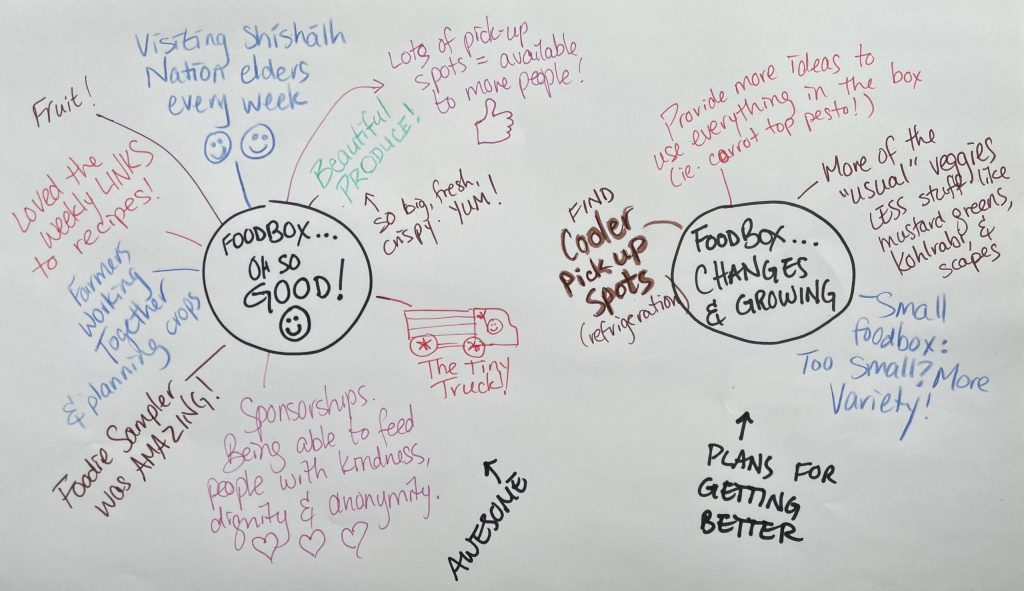 Visiting Shíshálh
Nation elders
every week
Fruit!
Loved the
weekly LINKS
to recipes!
Farmers
working
Together
& planning crops
Foodie Sampler
was AMAZING!
Sponsorships.
Being able to feed
people with kindness,
dignity & anonymity.
FOODBOX...
Oh so
GOOD!
Lots of pick-up
spots = available
to more people!
Beautiful
PRODUCE!
so big, fresh,
crispy. YUM!
The Tiny
Truck!
AWESOME
Provide more ideas to
use everything in the box
(ie. carrot top pesto!)
FIND
Cooler
Pick up
Spots
(refrigeration)
FOODBOX...
CHANGES
& GROWING
More of the
"usual" veggies
LESS stuff like
mustard greens,
Kohlrabi, &
scapes
Small
foodbox:
Too Small? More
Variety!
PLANS FOR
GETTING
BETTER